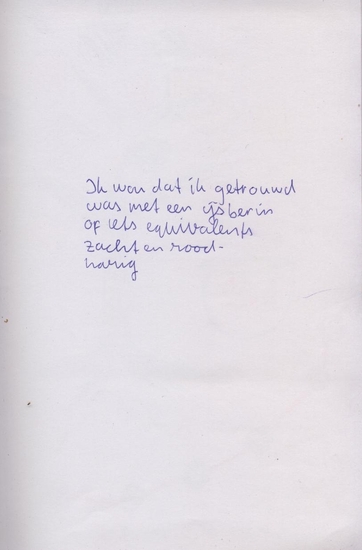 Ik wou dat ik getrouwd
was met een ijsberin
of iets equivalents
zacht en rood-
harig